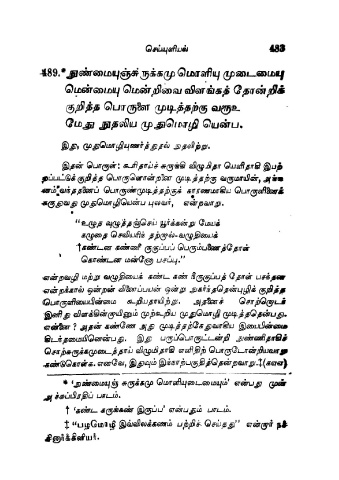 செய்யுளியல் 483
489.*நுண்மையுஞ்சுருக்கமு மொளியு முடைமையு
மென்மையு மென்றிவை விளங்கத் தோன்றிக்
குறித்த பொருளை முடித்தற்கு வரூஉ
மேது நுதலிய முதுமொழி யென்ப.
இது, முதுமொழியுணர்த்துதல் அதலிற்று.
இதன் பொருள்: கூரிதாய்ச் சுருங்கி விழுமிதா யெளிதாகி இயற்
றப்பட்டுக் குறித்த பொருளொன்றனை முடித்தற்கு வருமாயின், அங்ஙனம்
வந்ததனைப் பொருண்முடித்தற்குக் காரணமாகிய பொருளினைக்
கருதுவது முதுமொழியென்ப புலவர், என்றவாறு.
"உழுத வுழுத்தஞ்செய் யூர்க்கன்று மேயக்
கழுதை செவியரிந் தற்றால்-வழுதியைக்
†கண்டன கண்ணி ருப்பப் பெரும்பணைத்தோள்
கொண்டன மன்னோ பசப்பு."
என்றவழி மற்று வழுதியைக் கண்ட கண் ணிருப்பத் தோள் பசந்தன
என்றக்கால் ஒன்றன் வினைப்பயன் ஒன்று
இனிது விளக்கின்மையினும் முற்கூறிய முதுமொழி முடித்ததென்பது.
என்னை? அதன் கண்ணே அது முடித்தற்கேதுவாகிய இயைபின்மை
கிடந்தமையினென்பது. இது
சொற்சுருக்கமுடைத்தாய் விழுமிதாகி எளிதிற் பொருடோன்றியவாறு
கண்டுகொள்க. எனவே, இதுவும் இச்சொற்பகுதித்தென்றவாறு.‡
* 'நுண்மையுஞ் சுருக்கமு மொளியுடைமையும்' என்பது முன்
அச்சுப்பிரதிப் பாடம்.
† 'கண்ட கருங்கண் இருப்ப' என்பதும் பாடம்.
‡ "பழமொழி இவ்விலக்கணம் பற்றிச் செய்தது" என்றார் நச்
சினார்க்கினியர்.